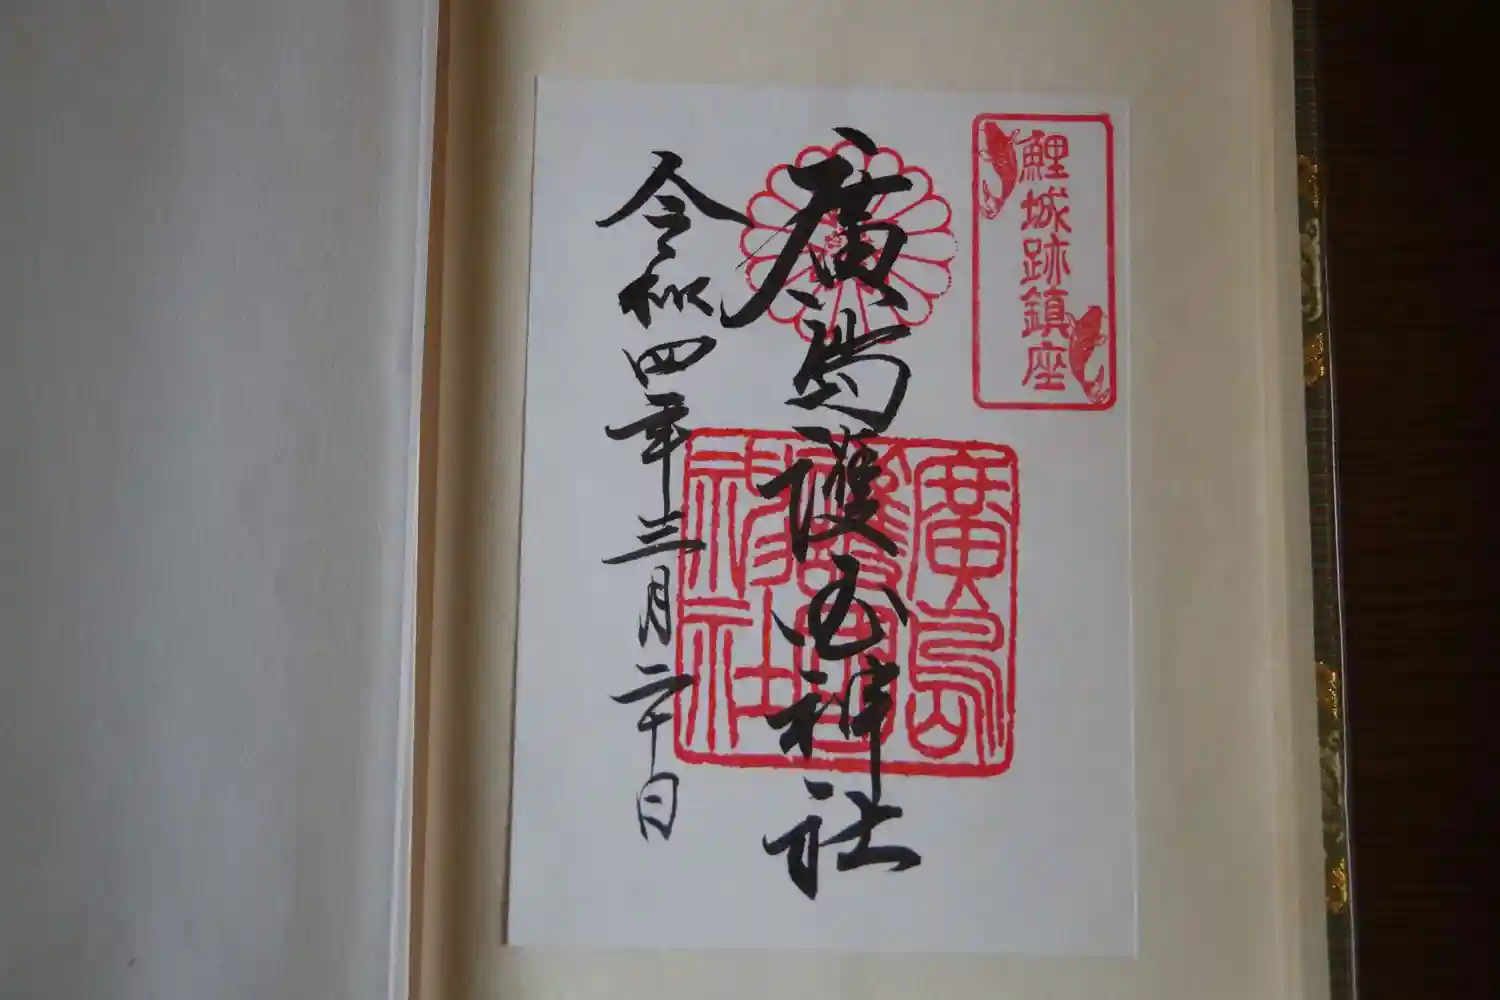 鯉城跡鎮座
廣島護国神社
廣島
護國
神社
令和四年三月二十日